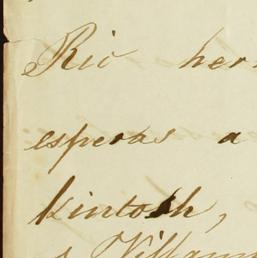 Rio her
esperas a
kintosh,
a Villann